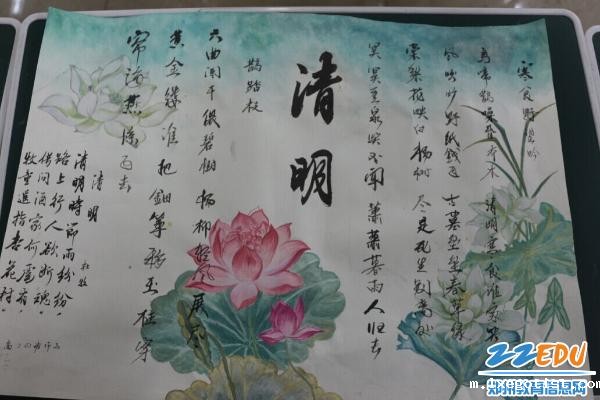 寒食野望吟
乌啼鹊噪昏乔木 清明寒食谁家哭
风吹旷野纸钱飞 古墓垒垒春草绿
棠梨花映白杨树 尽是死生别离处
冥冥重泉哭不闻 萧萧暮雨人归去
清明
鹊踏枝
六曲阑干偎碧树 杨柳轻风 展尽
黄金缕 谁把钿筝移玉柱 穿
帘海燕惊飞去
清明 杜牧
清明时节雨纷纷
路上行人欲断魂
借问酒家何处有
牧童遥指杏花村
ZZEDU
郑州教育信息网